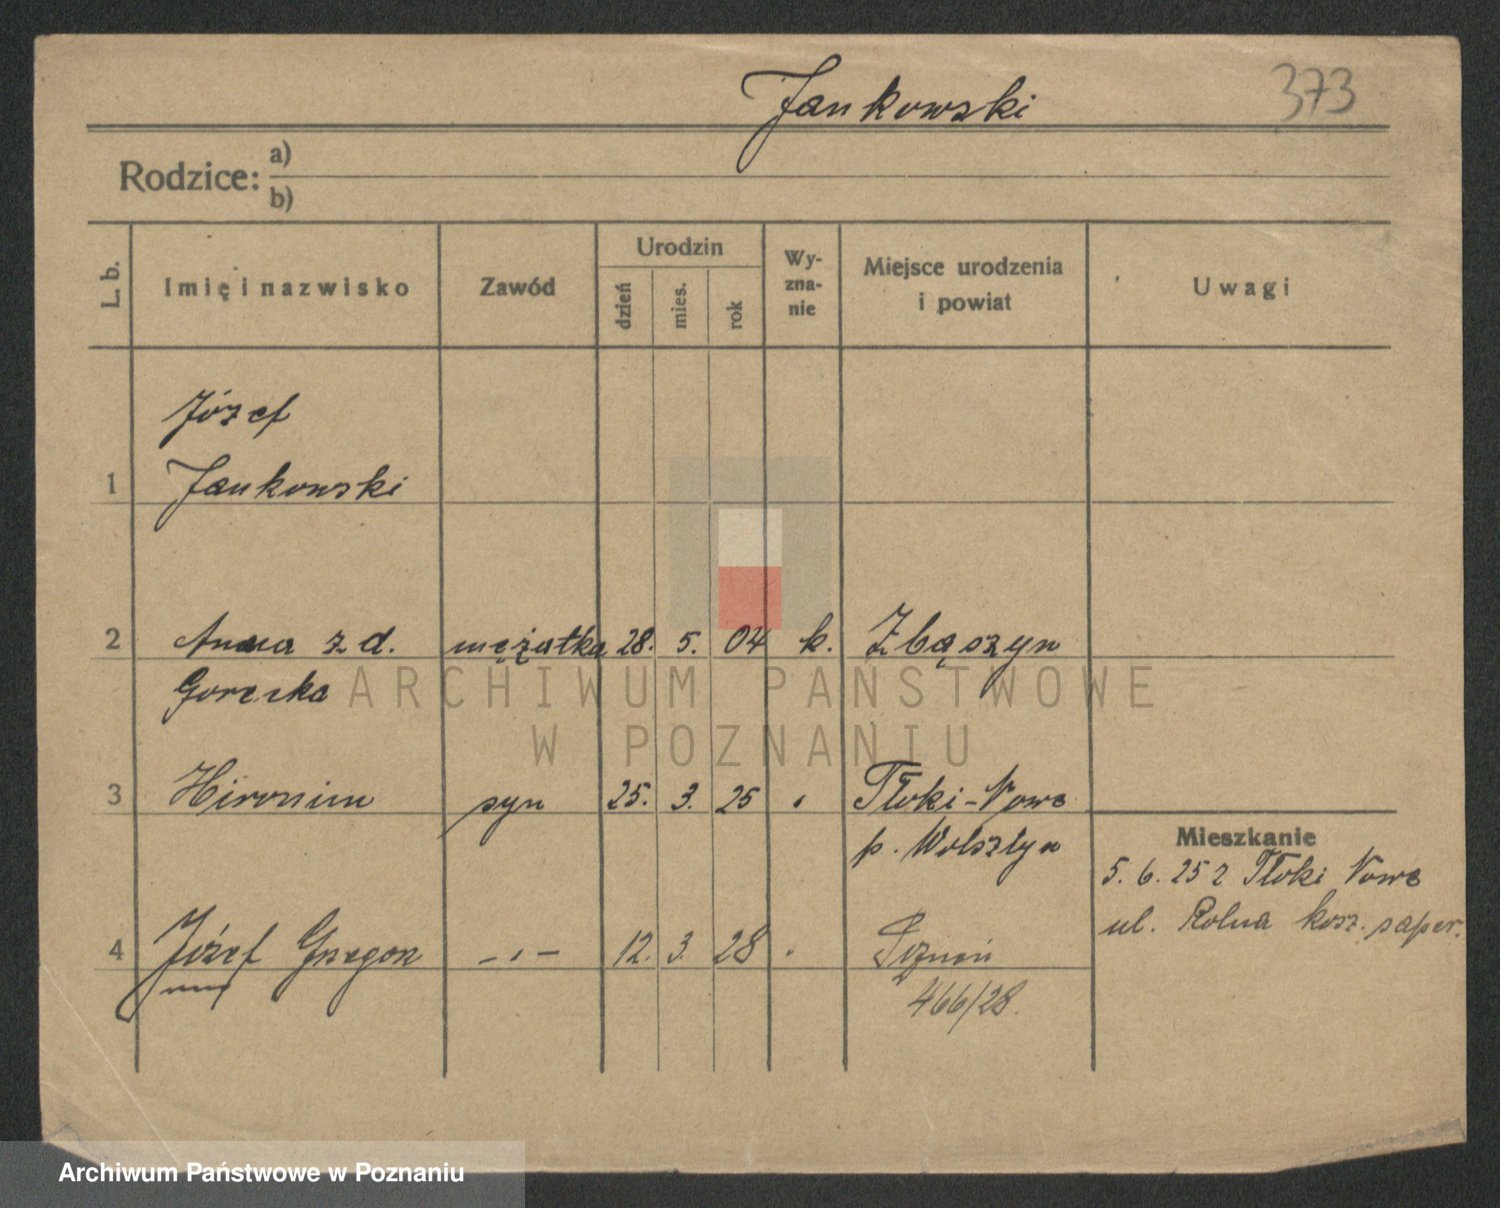 Jankowski 373
Rodzice: a)
b)
L. b. Imię i nazwisko Zawód Urodzin dzień mies. rok Wy-zna-nie Miejsce urodzenia i powiat Uwagi
Józef
1 Jankowski
2 Anna z d. mężatka 28. 5. 04 k. Zbąszyn
Gorzska
ARCHIWUM PAŃSTWOWE
W POZNANIU
3 Hironim syn 25. 3. 25 Tłoki-Nowe
p. Wolsztyn
Mieszkanie
5. 6. 25 z Tłoki Nowe
ul. Rolna kosz. saper.
4 Józef Grzegorz -„- 12. 3. 28 Poznań
466/28.
Archiwum Państwowe w Poznaniu